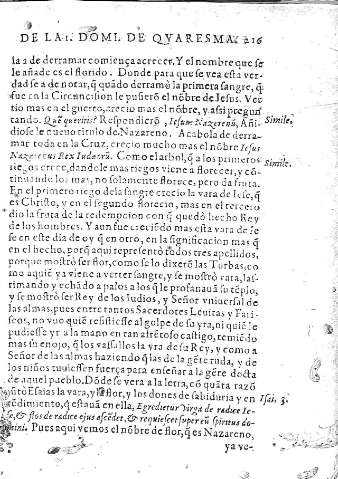 DE LA I. DOMI. DE QVARESMA. 216
la a de derramar comiença a crecer. Y el nombre que se
le añade es el florido. Donde para que se vea esta ver
dad se a de notar, q̃ quãdo derramó la primera sangre, q̃
fue en la Circuncision le pusierõ el nõbre de Iesus. Ver
tio mas en el guerto, crecio mas el nõbre, y assi pregun
tando. Quẽ queritis? Respondierõ, Iesum Nazarenũ, Añi
diosele nueuo titulo de Nazareno. Acabola de derra-
mar toda en la Cruz, crecio mucho mas el nõbre Iesus
Nazarenus Rex Iudæorũ. Como el arbol, q̃ a los primeros
riegos crece, dandole mas riegos viene a florecer, y cõ
tinuando los mas, no solamente florece, pero da fruta.
En el primero riego de la sangre crecio la vara de Iese, q̃
es Christo, y en el segundo florecio, mas en el tercero
dio la fruta de la redempcion con q̃ quedó hecho Rey
de los hombres. Y aun fue creciẽdo mas esta vara de Ie
se en este dia de oy q̃ en otro, en la significacion mas q̃
en el hecho, porq̃ aqui representó todos tres apellidos,
porque mostrò ser flor, como se lo dixerõ las Turbas, co
mo aquiẽ ya viene a verter sangre, y se mostrò vara, las-
timando y echãdo a palos a los q̃ profanauã su tẽplo,
y se mostrò ser Rey de los Iudios, y Señor vniuersal de
las almas, pues entre tantos Sacerdotes Leuitas y Fari-
seos, no vuo quiẽ resistiesse al golpe de su yra, ni quiẽ le
pudiesse yr a la mano en tan afrẽtoso castigo, temiẽdo
mas su enojo, q̃ los vassallos la yra de su Rey, y como a
Señor de las almas haziendo q̃ las de la gẽte ruda, y de
los niños tuuiessen fuerça para enseñar a la gẽte docta
de aquel pueblo. Dõde se vera a la letra, cõ quãta razõ
jũtó Esaias la vara, y la flor, y los dones de sabiduria y en
tẽdimiento, q̃ estauã en ella, Egredietur virga de radice Ie-
se, & flos de radice eius ascẽdet, & requiescet super eũ spiritus do-
mini. Pues aqui vemos el nõbre de flor, q̃ es Nazareno,
ya ve-
Simile,
Simile.
Isai. 3.